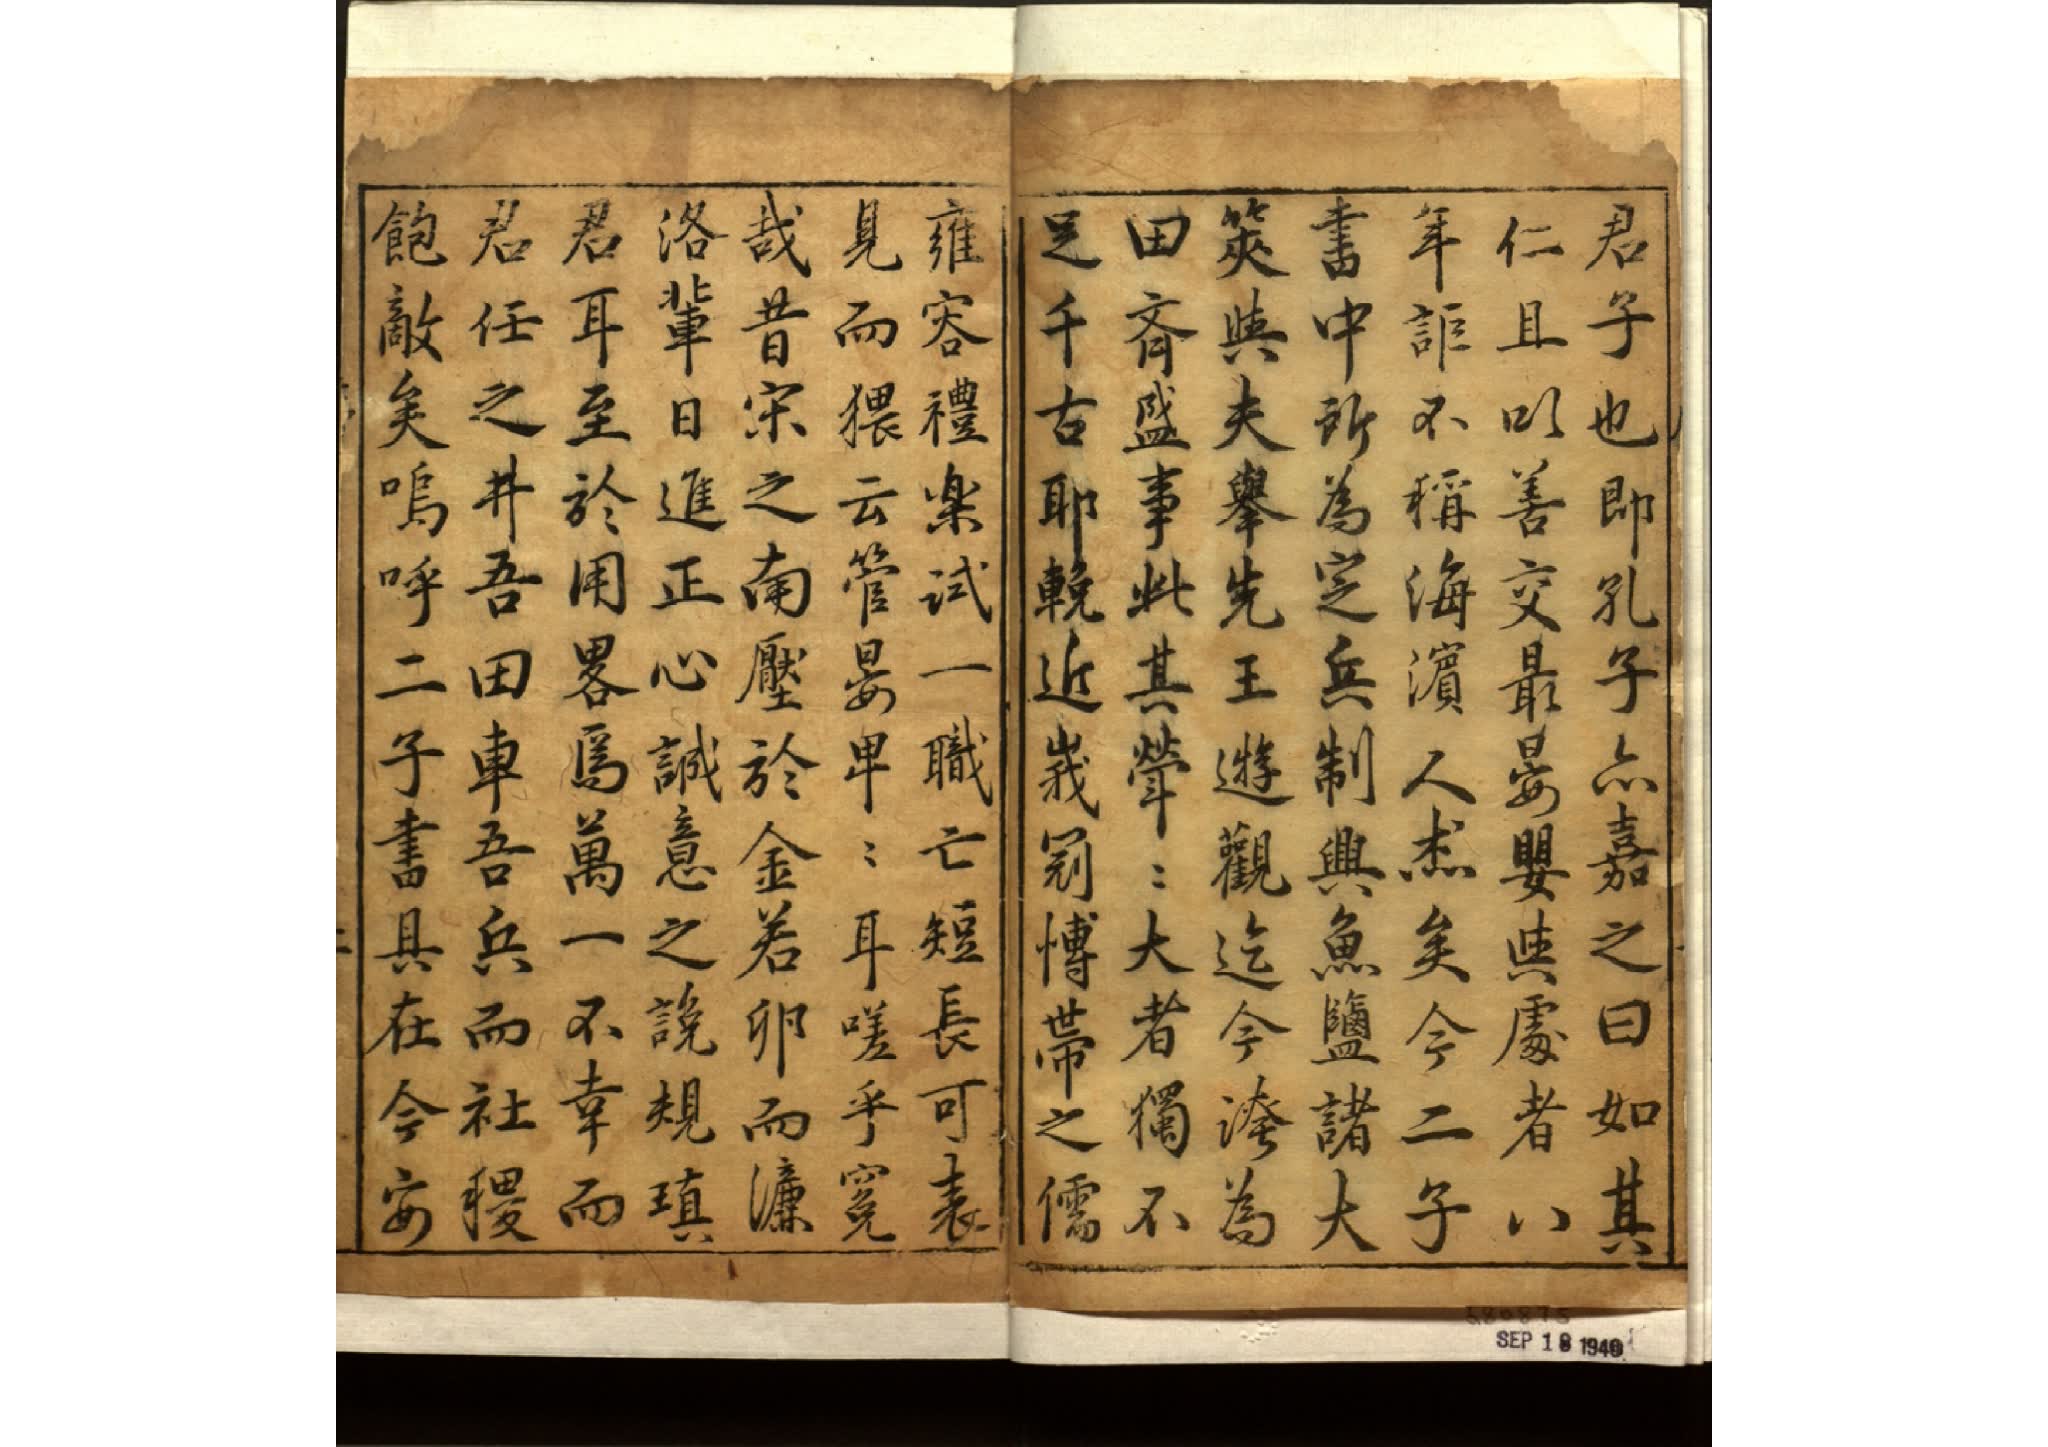 君子也即孔子亦嘉之曰如其
仁且以善交最晏嬰與處者八
年詎不稱海濵人杰矣今二子
書中所為定兵制興魚鹽諸大
筴與夫舉先王遊觀迄今誇為
田齊盛事此其犖〻大者獨不
足千古耶輓近峩冠博帶之儒
雍容禮樂試一職亡短長可表
見而猥云管晏卑〻耳嗟乎冤
哉昔宋之南壓於金若卵而濂
洛輩日進正心誠意之說規瑱
君耳至於用畧焉萬一不幸而
君任之井吾田車吾兵而社稷
飽敵矣嗚呼二子書具在今安
SEP 18 1940